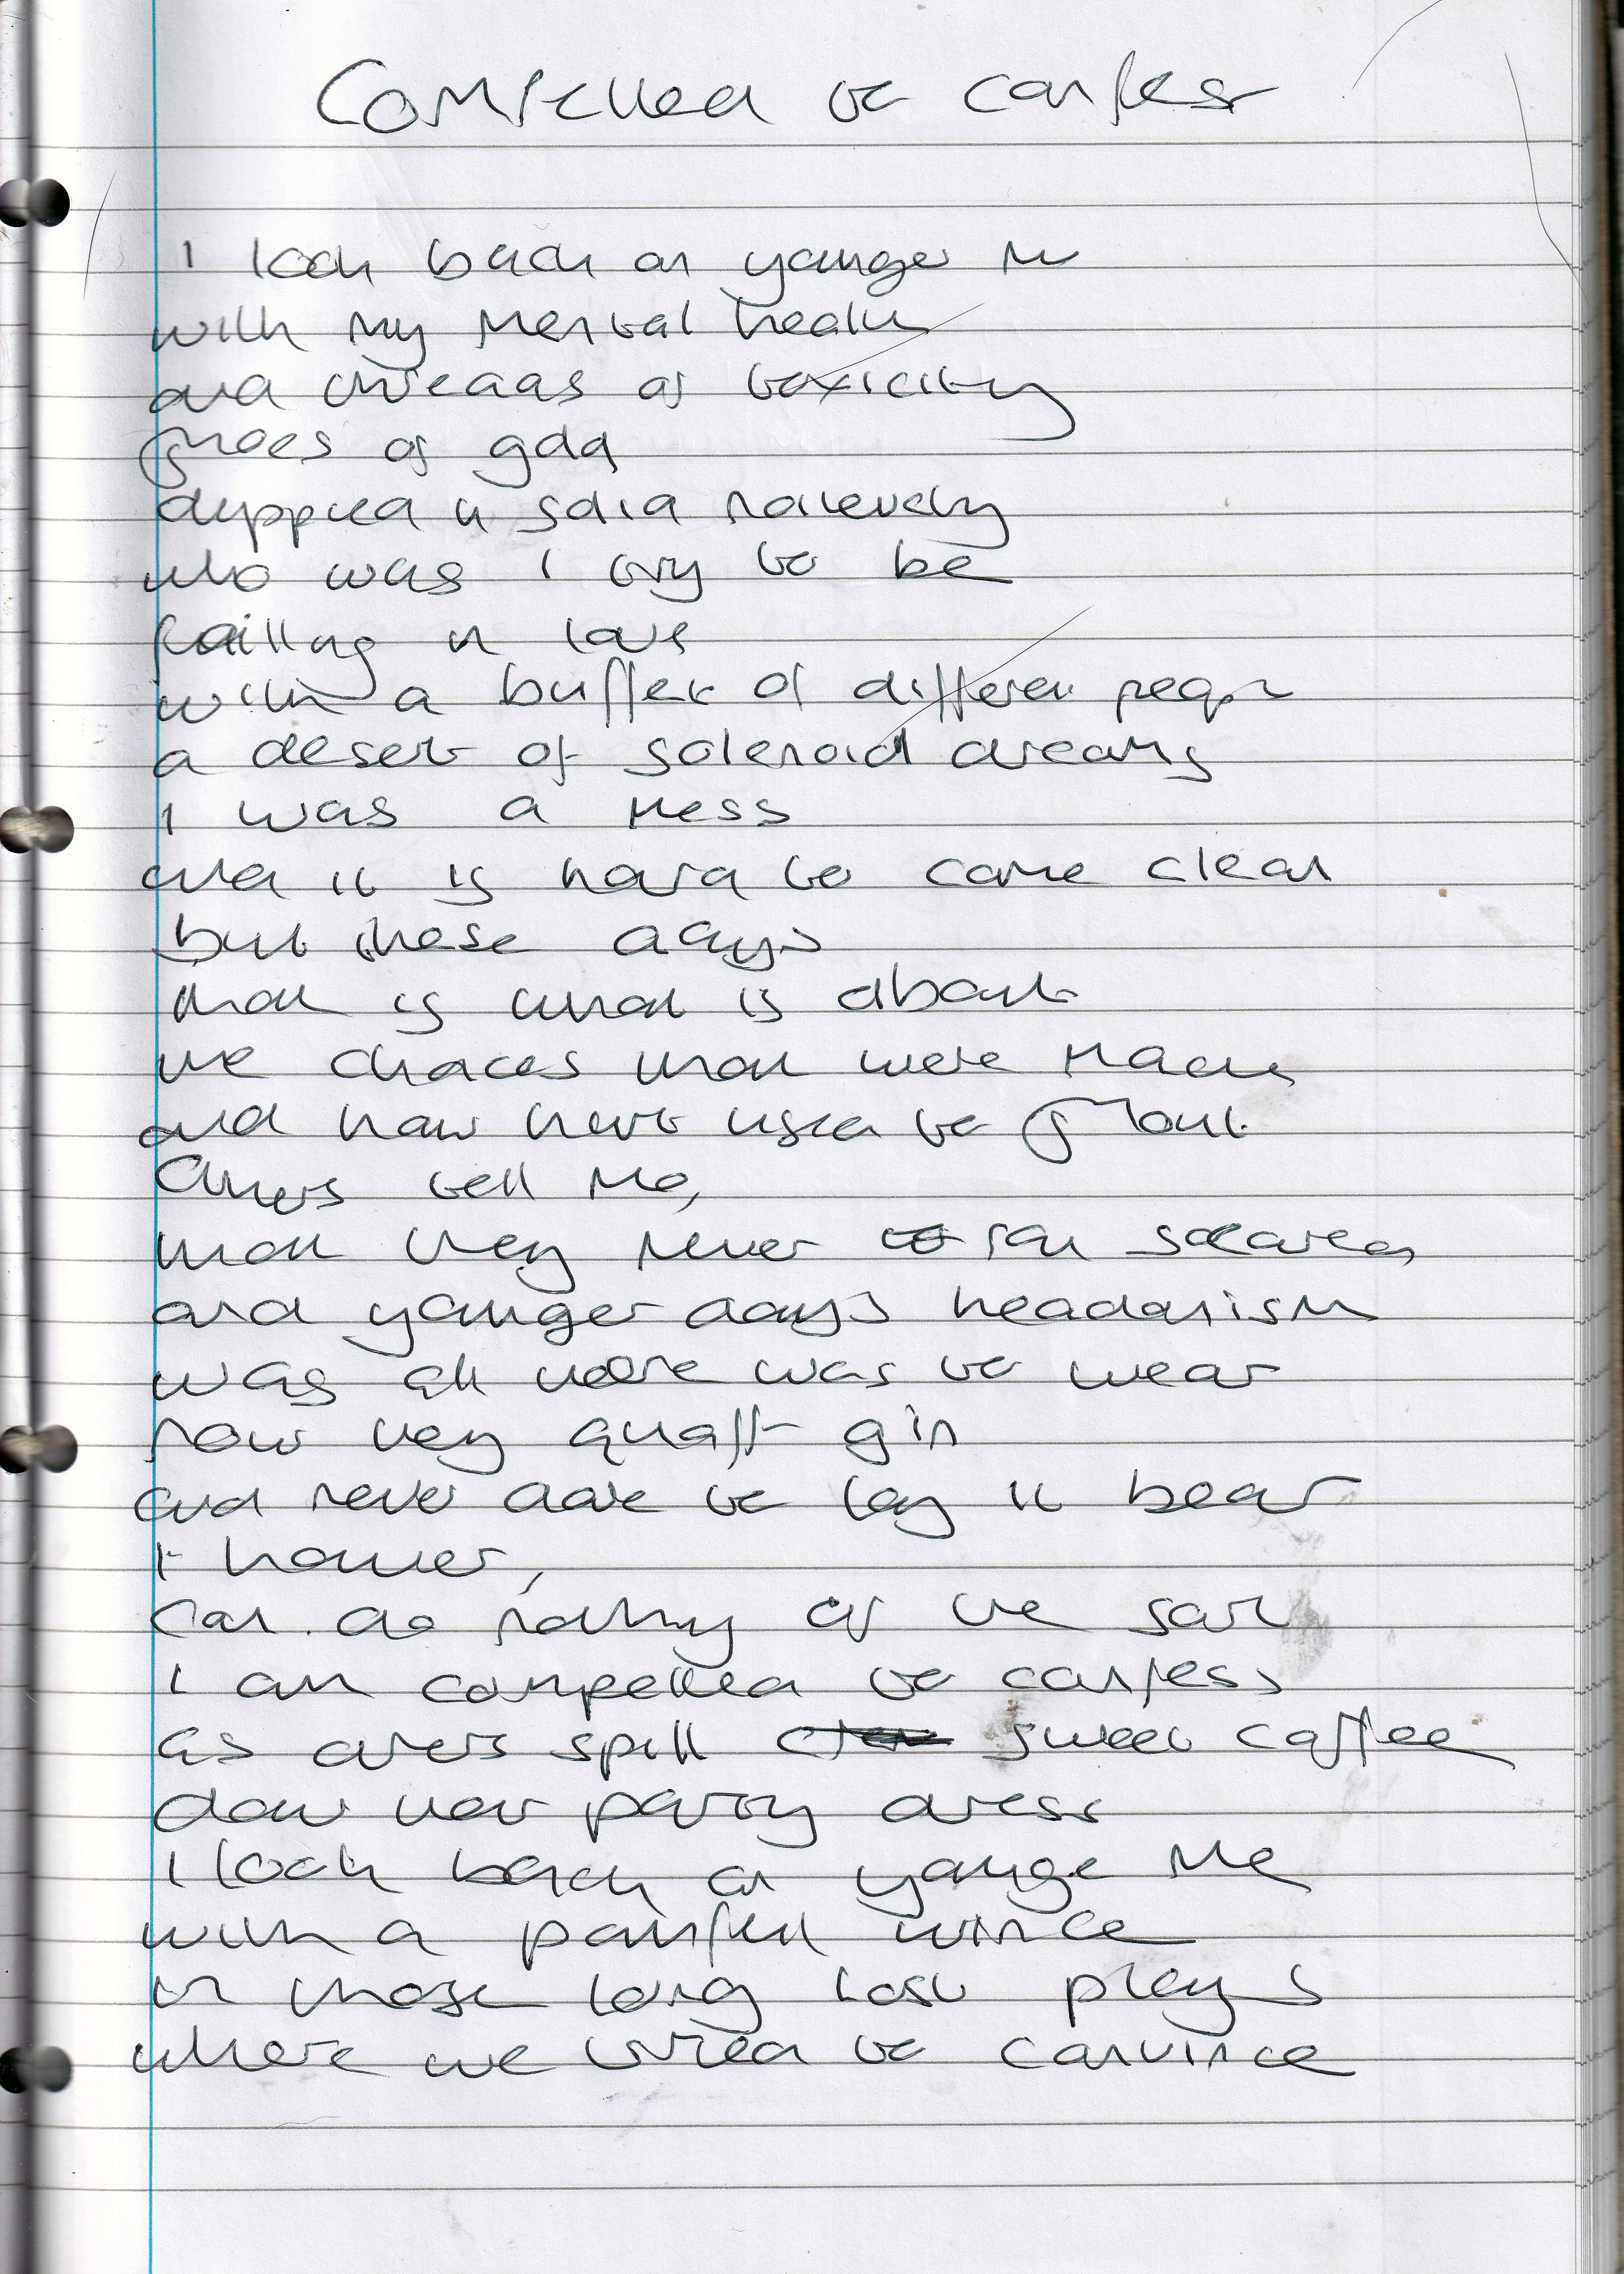 Compelled to confess
I look back on younger me
with my mental health
and threads of toxicity
shoes of gold
dipped in solid naievety
who was I try to be
failling in love
with a buffet of different people
a desert of solenoid dreams
I was a mess
and it is hard to come clean
but these days
that is what is about
the choices that were made
and how hurt used to flout
Others tell me,
that they never ran scared
and younger days headonism
was all there was to wear
now they quaff gin
and never dare to lay it bear
I however,
can do nothing of the sort
I am compelled to confess
as others spill sweet coffee
down their party dress
I look back on younge me
with a painfull wince
in those long lost plays
where we tried to convince